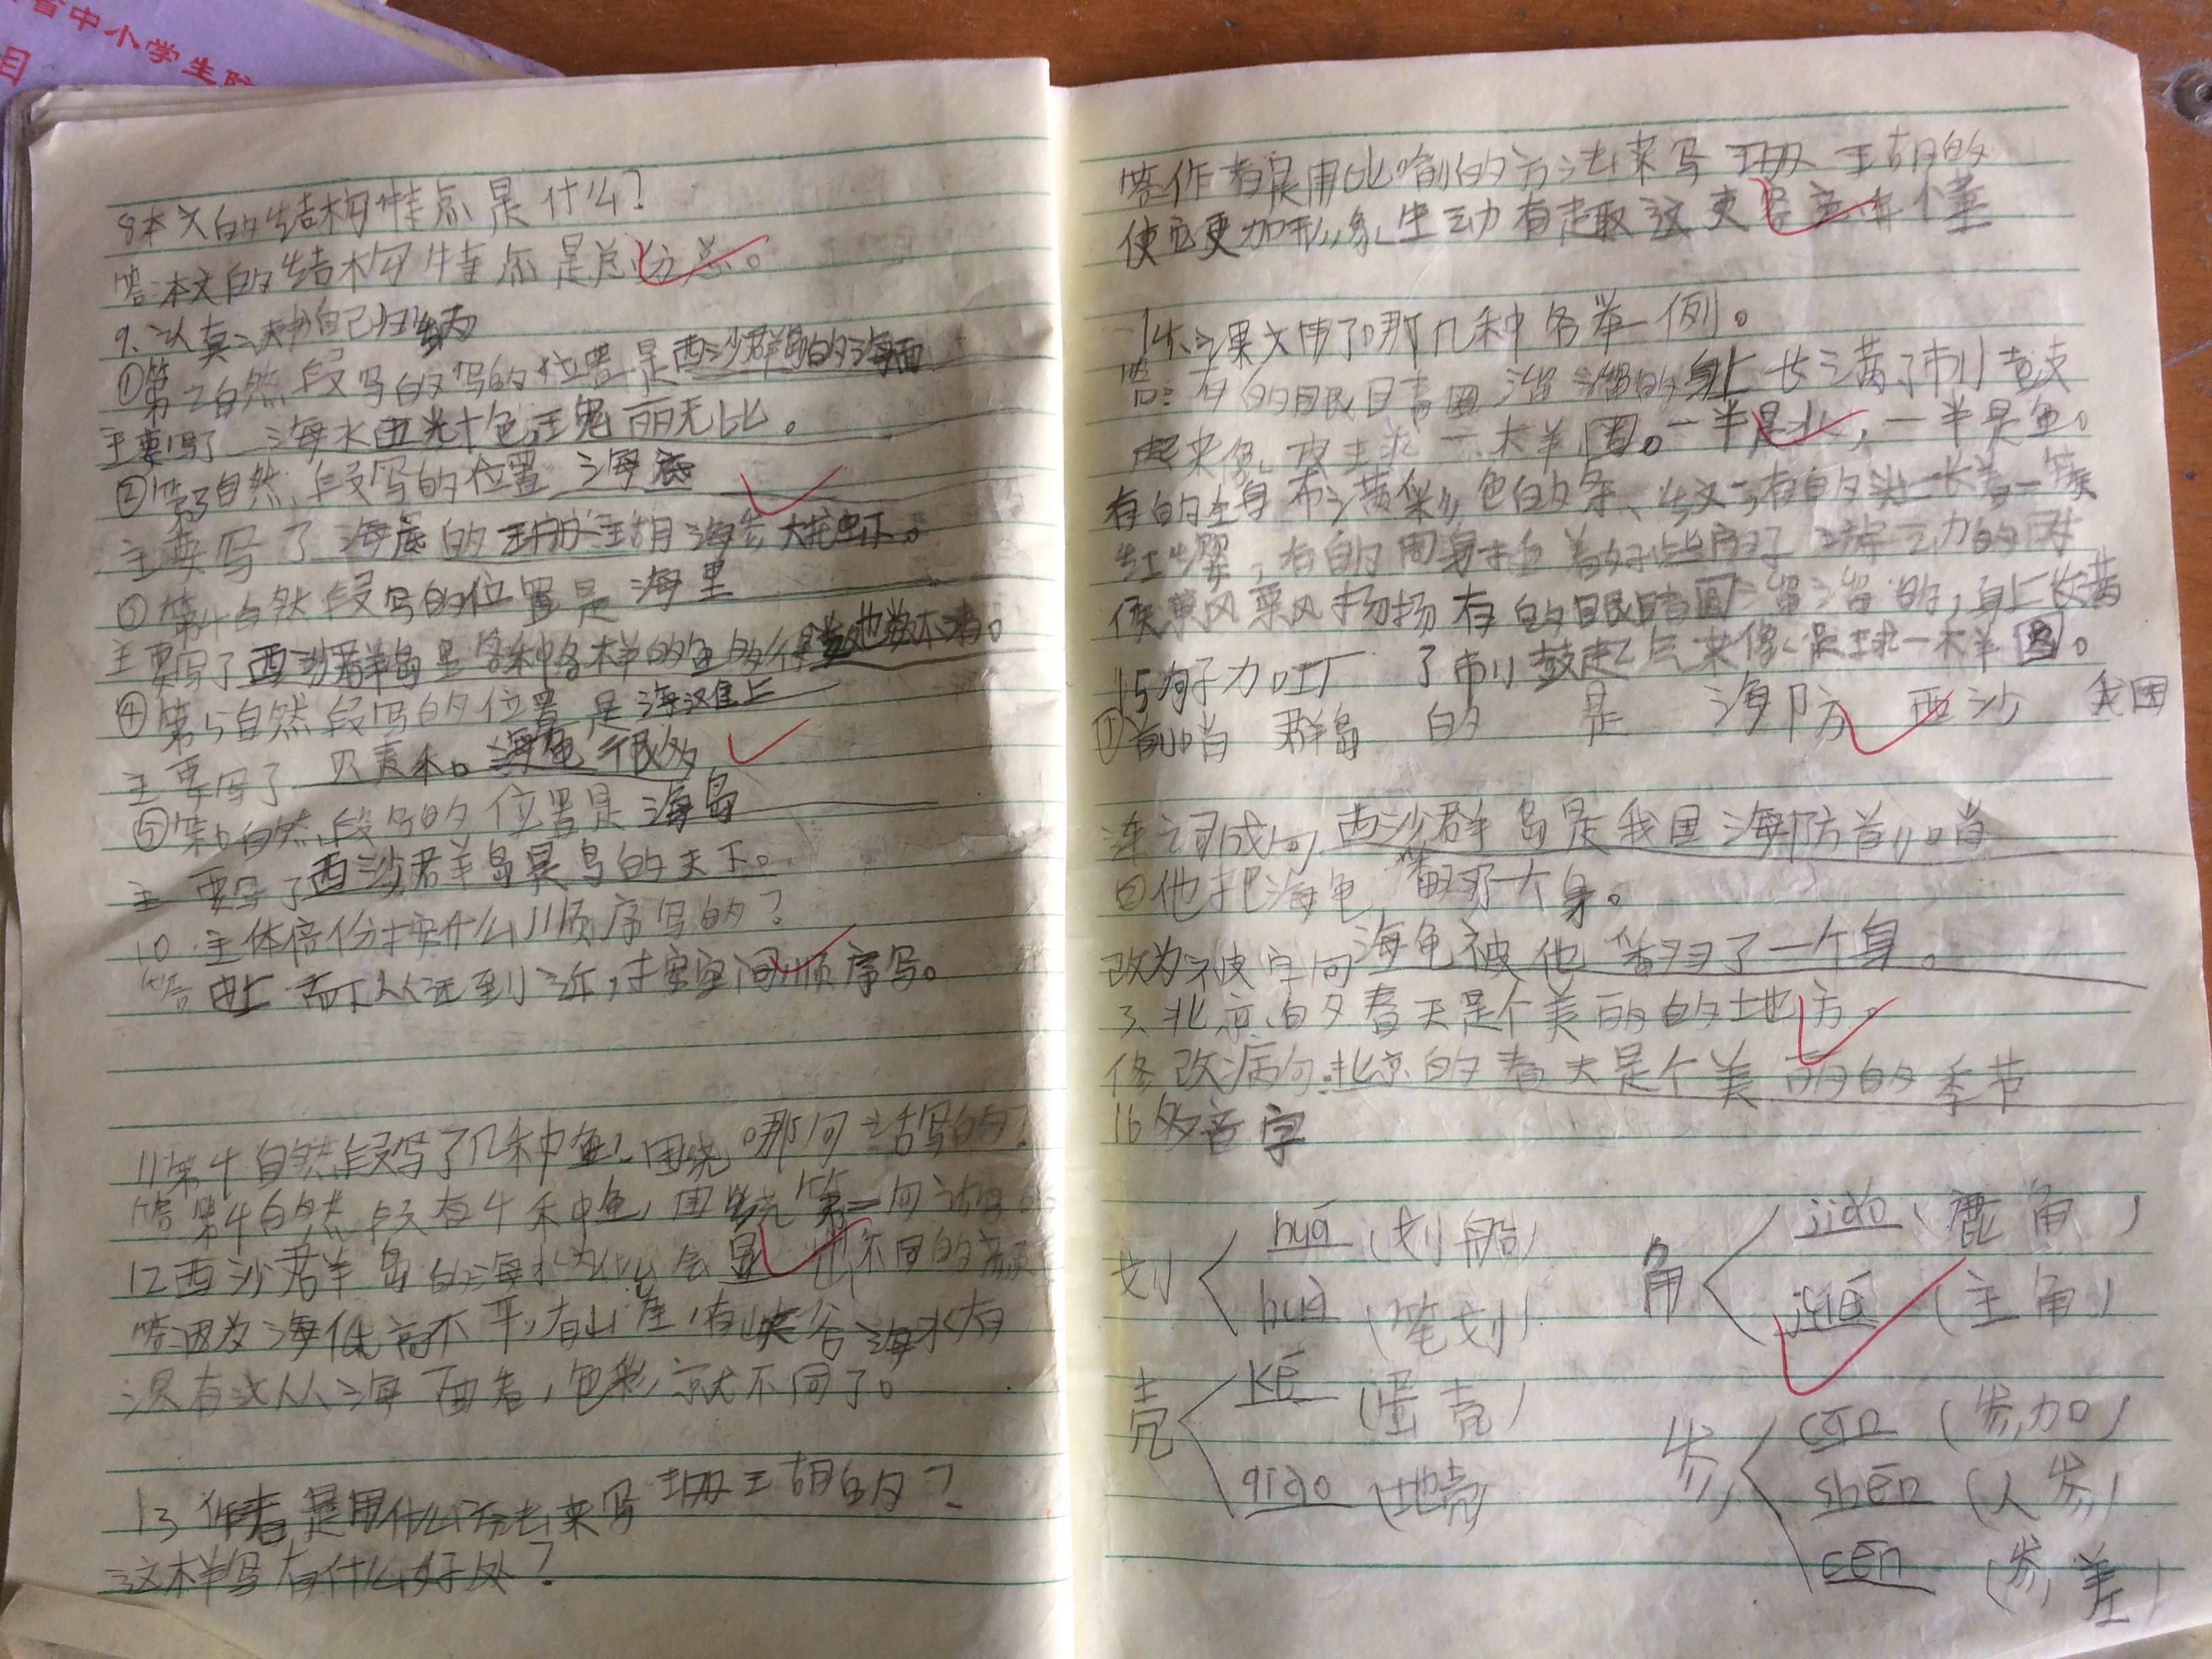 省中小学生
目
8本文的结构特点是什么?
答:本文的结构特点是总分总。
9、认真读自己归纳
①第2自然段写的写的位置是西沙群岛的海面
主要写了 海水五光十色,瑰丽无比。
②第3自然段写的位置 海底
主要写了 海底的珊瑚 海参 大龙虾。
③第4自然段写的位置是 海里
主要写了西沙群岛是各种各样的鱼多得数也数不清。
④第5自然段写的位置是海滩上
主要写了 贝壳 海龟 很多
⑤第6自然段写的位置是海岛
主要写了西沙群岛是鸟的天下。
10.主体部份按什么顺序写的?
答 由上而下从远到近,按空间顺序写。
11第4自然段写了几种鱼?围绕哪句话写的?
答第4自然段有4种鱼,围绕第一句话写的
12西沙群岛的海水为什么会显出不同的颜
答因为海低高不平,有山崖,有峡谷海水有
深有浅从海面看,色彩就不同了。
13作者是用什么方法来写珊瑚的?
这样写有什么好处?
答作者是用比喻的方法来写珊瑚的
使它更加形象生动有趣这更
14、课文用了哪几种各举一例。
答:有的眼睛圆溜溜的身上长满了刺鼓
起来像皮球一样圆。一半是水,一半是鱼。
有的全身布满彩色的条纹;有的头上长着一簇
红缨,有的周身插着好些扇子游动的时
候飘飘扬扬有的眼睛圆溜溜的,身上长满
15句子加工厂 了刺鼓起气来像皮球一样圆。
①前哨 群岛 的 是 海防 西沙 我国
连词成句 西沙群岛是我国海防前哨
②他把海龟翻了个身。
改为被字句海龟被他翻了一个身。
3、北京的春天是个美丽的地方。
修改病句.北京的春天是个美丽的季节
16多音字
划 huá (划船) 角 jiǎo (鹿角)
huà (笔划) jué (主角)
壳 ké (蛋壳) 参 cān (参加)
qiào (地壳) shēn (人参)
cēn (参差)